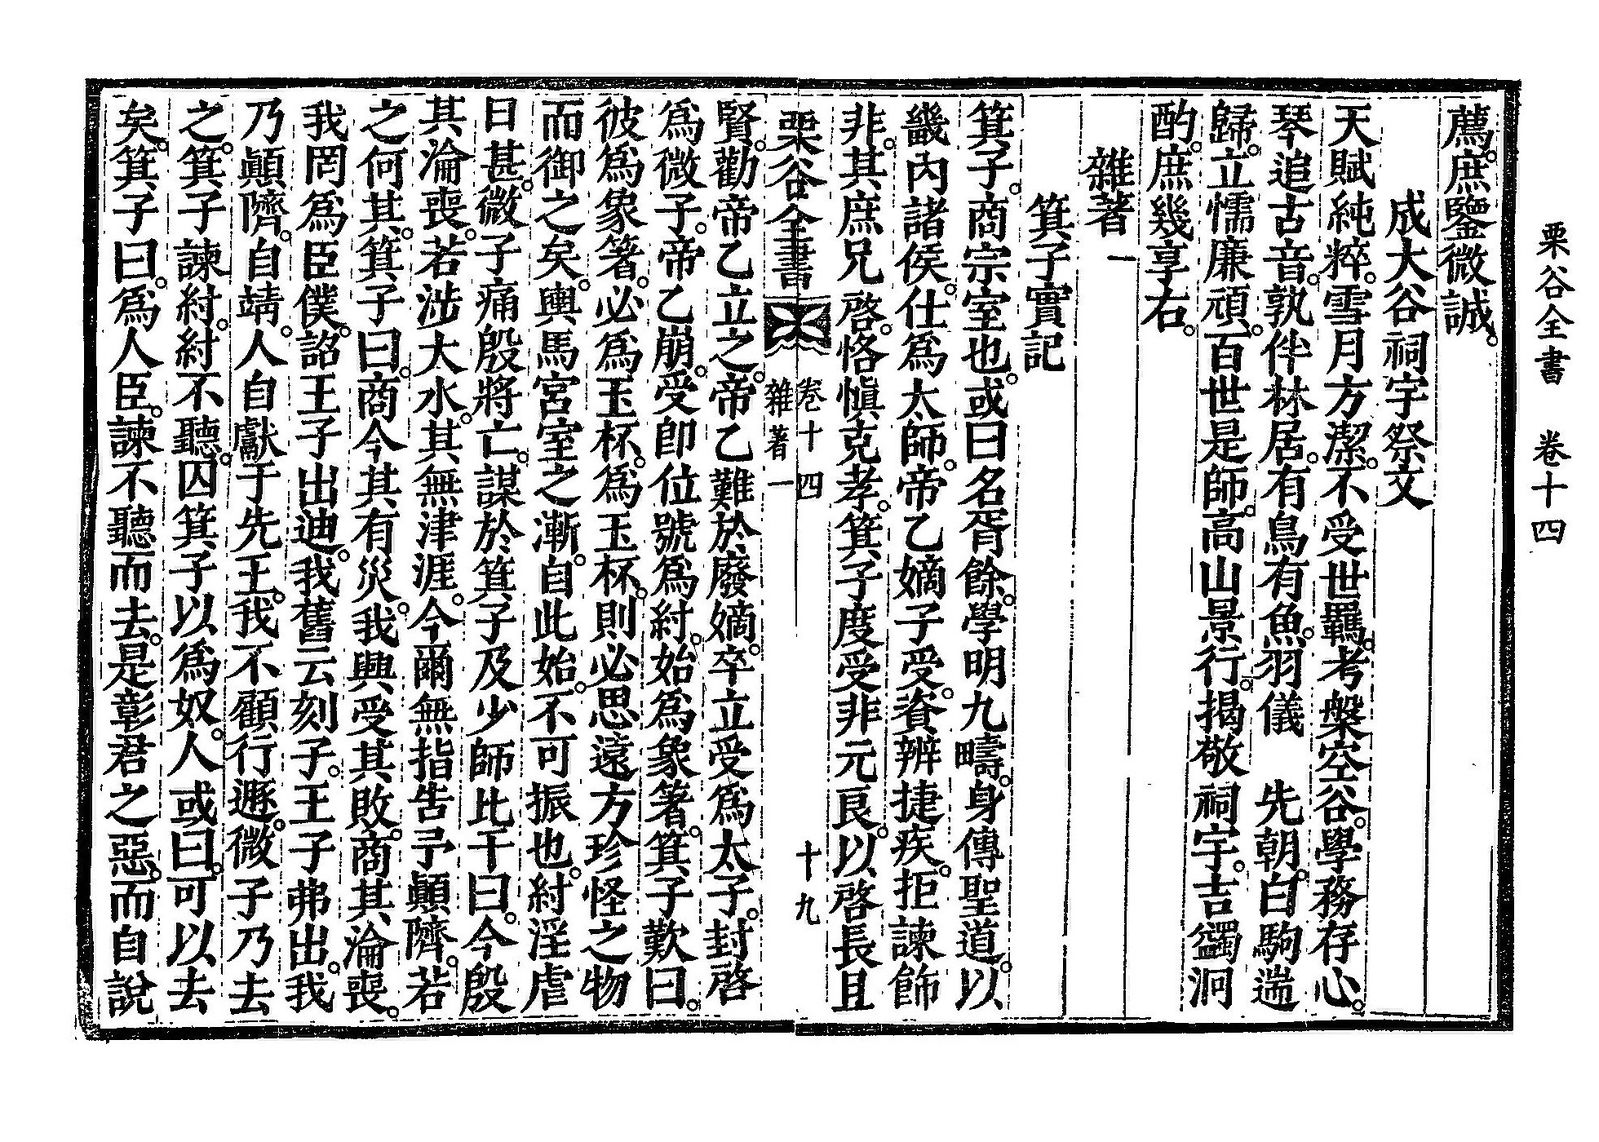 栗谷全書　卷十四
薦。庶鑒微誠。
成大谷祠宇祭文
天賦純粹。雪月方潔。不受世羈。考槃空谷。學務存心。
琴追古音。孰伴林居。有鳥有魚。羽儀　先朝。白駒遄
歸。立懦廉頑。百世是師。高山景行。揭敬祠宇。吉蠲泂
酌。庶幾享右。
雜著一
箕子實記
箕子。商宗室也。或曰名胥餘。學明九疇。身傳聖道。以
畿內諸侯。仕爲太師。帝乙嫡子受。資辨捷疾。拒諫飾
非。其庶兄啓。恪愼克孝。箕子度受非元良。以啓長且
栗谷全書　卷十四　雜著一　十九
賢。勸帝乙立之。帝乙難於廢嫡。卒立受爲太子。封啓
爲微子。帝乙崩。受卽位號爲紂。始爲象箸。箕子歎曰。
彼爲象箸。必爲玉杯。爲玉杯。則必思遠方珍怪之物
而御之矣。輿馬宮室之漸。自此始。不可振也。紂淫虐
日甚。微子痛殷將亡。謀於箕子及少師比干曰。今殷
其淪喪。若涉大水。其無津涯。今爾無指告予顚隮。若
之何其。箕子曰。商今其有災。我興受其敗。商其淪喪。
我罔爲臣僕。詔王子出迪。我舊云刻子。王子弗出。我
乃顚隮。自靖。人自獻于先王。我不顧行遯。微子乃去
之。箕子諫紂。紂不聽。囚箕子以爲奴。人或曰。可以去
矣。箕子曰。爲人臣。諫不聽而去。是彰君之惡。而自說